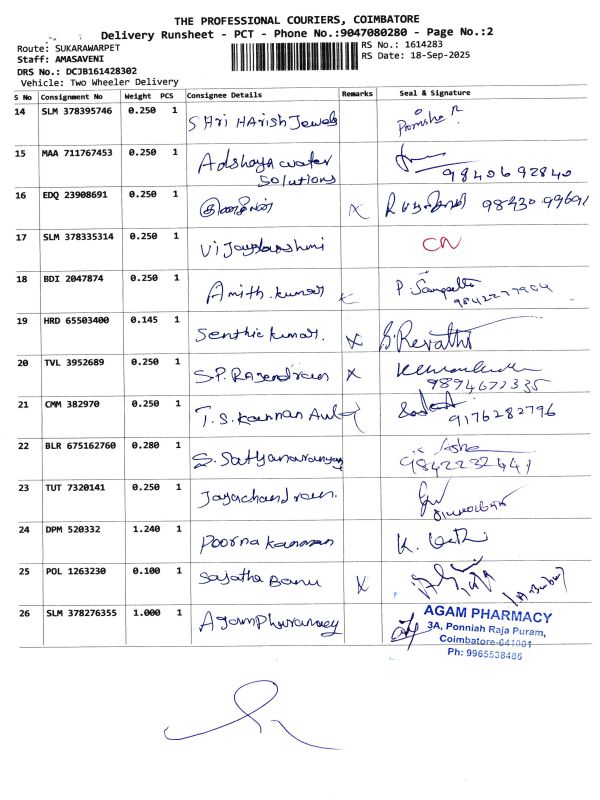 THE PROFESSIONAL COURIERS, COIMBATORE
Delivery Runsheet - PCT - Phone No.:9047080280 - Page No.:2
Route: SUKARAWARPET
Staff: AMASAVENI
DRS No.: DCJB161428302
Vehicle: Two Wheeler Delivery
RS No.: 1614283
RS Date: 18-Sep-2025
S No Consignment No Weight PCS Consignee Details Remarks Seal & Signature
14 SLM 378395746 0.250 1 SHri HArish Jewels
15 MAA 711767453 0.250 1 Adshaya water
Solutions 9840692840
16 EDQ 23908691 0.250 1 X
17 SLM 378335314 0.250 1 Vijayalakshmi CN
18 BDI 2047874 0.250 1 Amith.kumar P.
9842277904
19 HRD 65503400 0.145 1 Senthil kumar. X S.Revathi
20 TVL 3952689 0.250 1 S.P. Rajendran X
9894671335
21 CMM 382970 0.250 1 T.S. Kannan
9176282796
22 BLR 675162760 0.280 1 S. Satyanarayana Asha
9842232441
23 TUT 7320141 0.250 1 Jayachandran.
24 DPM 520332 1.240 1 Poorna Kannan K.
25 POL 1263230 0.100 1 Sajatha Banu X
26 SLM 378276355 1.000 1 Agam Pharmacy
AGAM PHARMACY
3A, Ponniah Raja Puram,
Coimbatore-641001
Ph: 9965538485